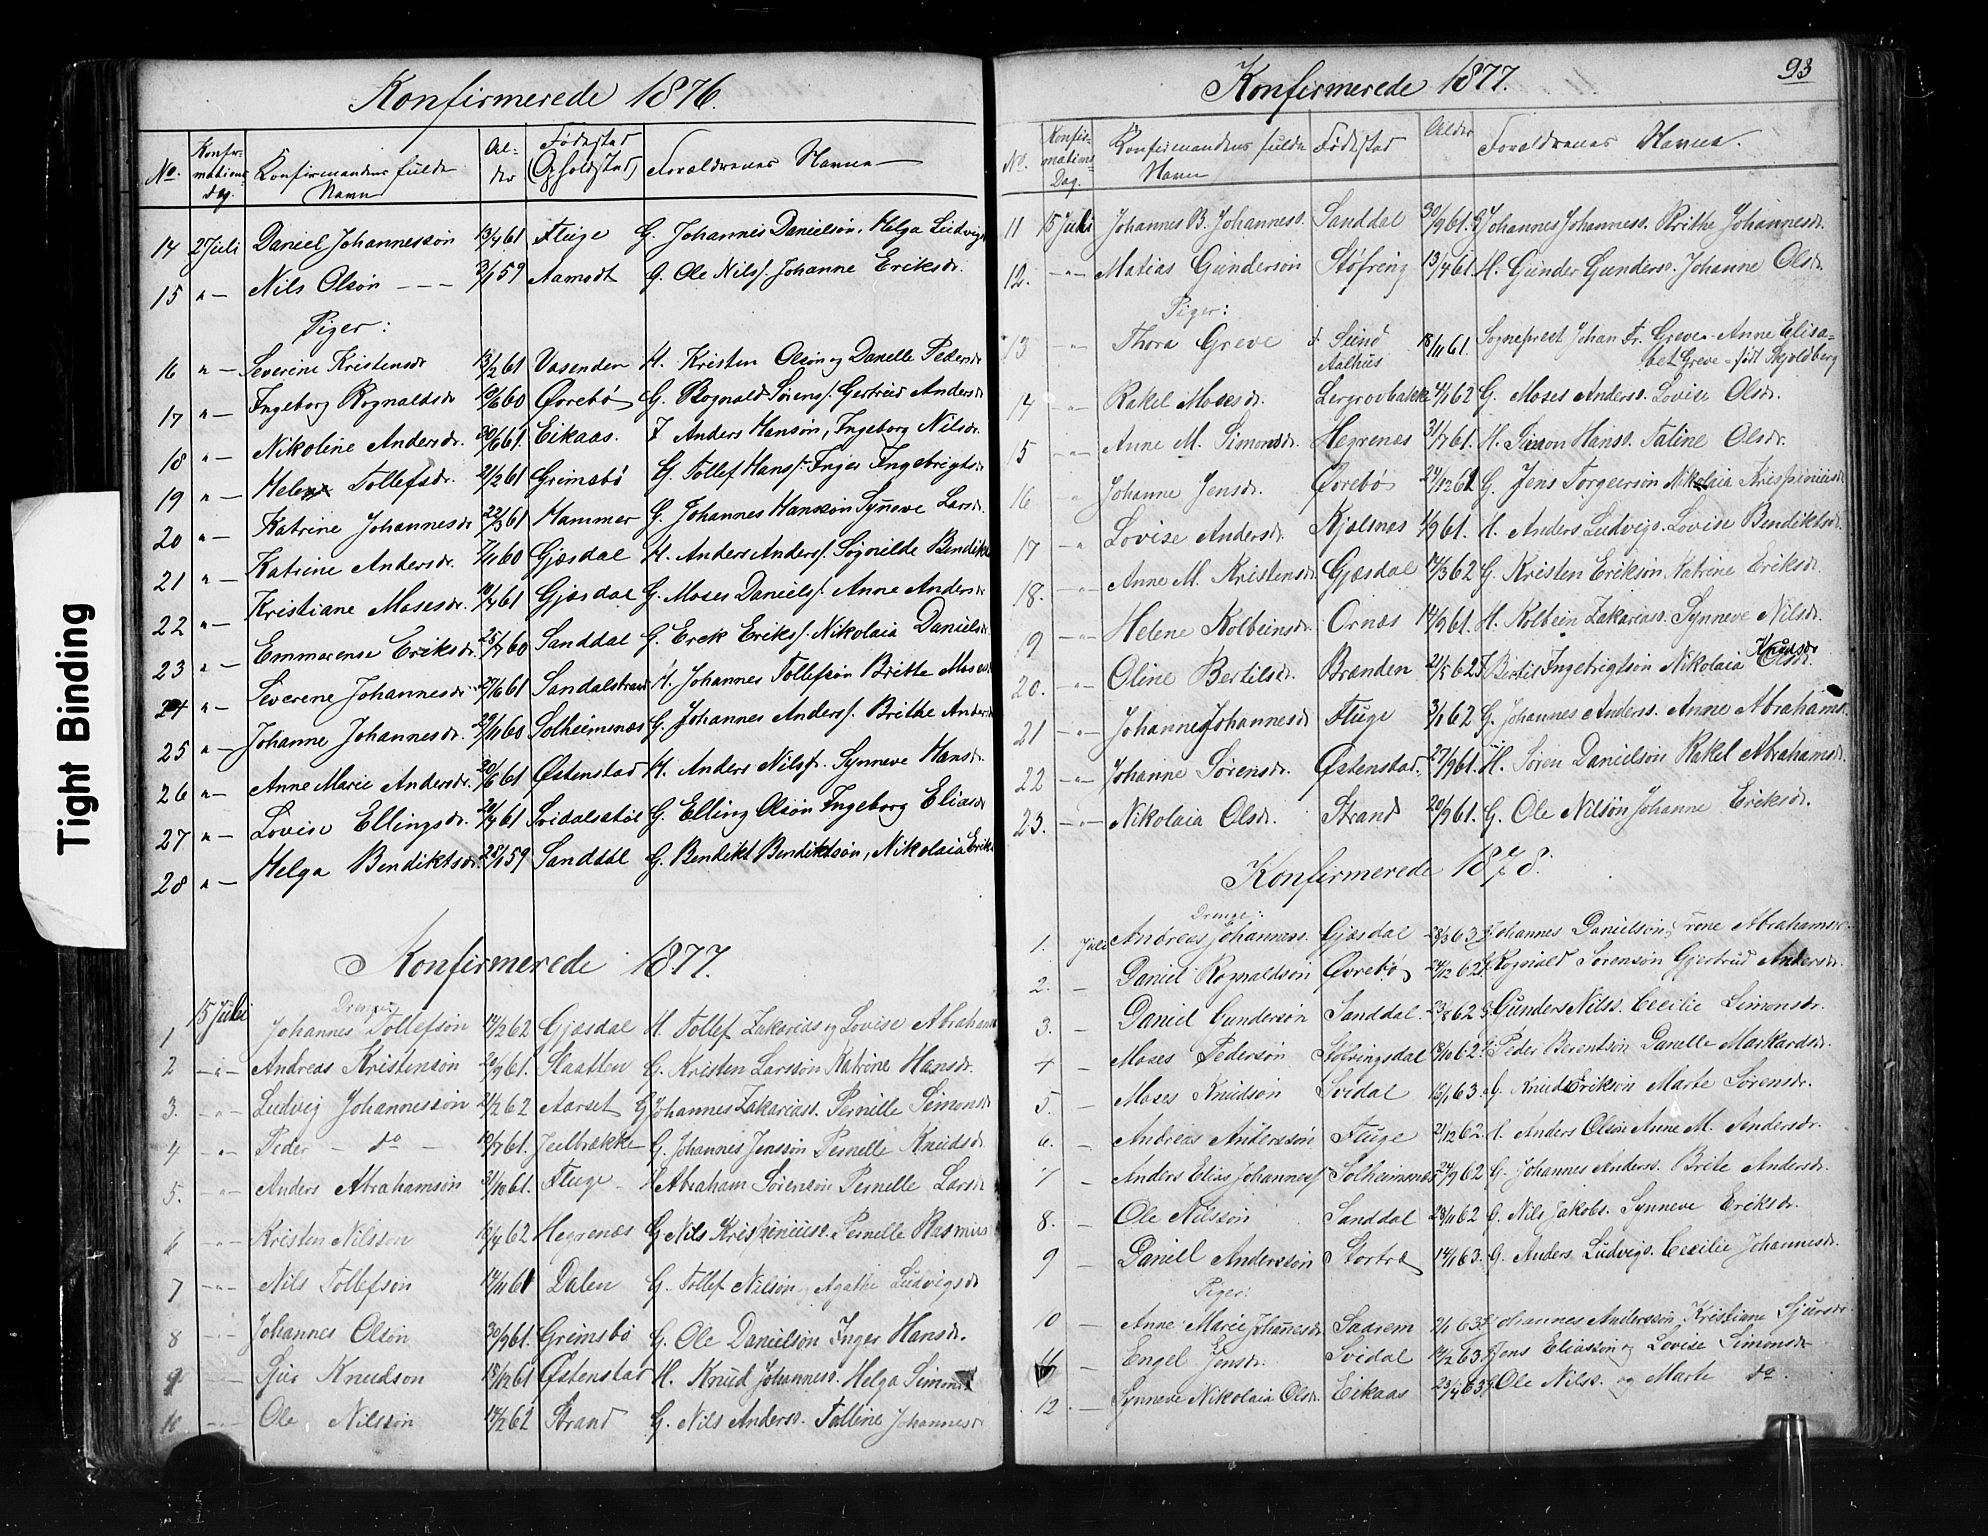 Tight Binding
Konfirmerede 1876.
No. Konfirmations dag Konfirmandens fulde Navn Alder Fødested (Opholdsted) Forældrenes Navne
14 2 Juli Daniel Johannessøn 13/4 61 Fluge G. Johannes Danielsøn, Helga Ludvigs
15 " — Nils Olsøn - - - 2/1 59 Aamodt G. Ole Nilss. Johanne Eriksdr.
Piger:
16 " — Severine Kristensdr 13/2 61 Vasenden H. Kristen Olsøn og Danelle Pedersdr
17 " — Ingeborg Rognaldsdr 10/6 60 Øvrebø G. Rognald Sørens. Gertrud Andersdr
18 " — Nikoline Andersdr. 30/6 61 Eikaas. F Anders Hansøn, Ingeborg Nilsdr.
19 " — Helene Tollefsdr. 21/2 61 Grimsbø G. Tollef Hanss. Inger Ingebrigtsdr
20 " — Katrine Johannesdr 22/3 61 Hammer G. Johannes Hanssøn Synneve Larsdr.
21 " — Katrine Andersdr. 7/11 60 Gjæsdal H. Anders Anderss. Søgnilde Bendikts
22 " — Kristiane Mosesdr. 10/4 61 Gjæsdal G. Moses Daniels. Anne Andersdr
23 " — Emmerense Eriksdr. 25/7 60 Sanddal G. Erek Eriks. Nikolaia Danielsdr
24 " — Severene Johannesdr. 27/6 61 Sandalstrand H. Johannes Tollefsøn Brithe Moses
25 " — Johanne Johannesdr. 29/11 60 Solheimsnæs G. Johannes Anderss. Brithe Andersdr
26 " — Anne Marie Andersdr. 20/6 61 Østenstad H. Anders Nilss. Synneve Hansdr.
27 " — Lovise Ellingsdr. 21/4 61 Svidalsstøl G. Elling Olsøn Ingeborg Eliasdr
28 " — Helga Bendiktsdr. 28/1 59 Sanddal G. Bendikt Bendiktsøn, Nikolaia Eriks
Konfirmerede 1877.
15 Juli Drenge
1 Johannes Tollefsøn 14/2 62 Gjæsdal H. Tollef Zakarias og Lovise Abraham
2 - " - Andreas Kristensøn 24/9 61. Slaatten G. Kristen Larssøn Katrine Hansdr.
3. - " - Ludvig Johannessøn 21/2 62 Aarset G Johannes Zakariass. Pernille Simonsdr
4 - " - Peder - do - 10/7 61. G. Johannes Jenssøn Pernelle Knudsdr
5. - " - Anders Abrahamsøn 31/10 61. Fluge H Abraham Sørensøn Pernelle Larsdr
6 - " - Kristen Nilssøn 10/4 62 Hegrenæs G Nils Krispiniuss. Pernelle Rasmus
7 - " - Nils Tollefsøn 14/11 61 Dalen G. Tollef Nilssøn og Agathe Ludvigsdr
8 - " - Johannes Olsøn 30/9 61. Grimsbø G. Ole Danielsøn Inger Hansdr.
9 - " - Sjur Knudson 15/12 61 Østenstad H. Knud Johanness. Helga Simons
10 - " - Ole Nilssøn 14/2 62 Strand G. Nils Anderss. Talline Johannesdr
Konfirmerede 1877. 93
No. Konfirmations Dag. Konfirmandens fulde Navn Fødested Alder Forældrenes Navne.
11 15 Juli Johannes B. Johanness. Sanddal 30/9 61. G Johannes Johanness. Brithe Johannesdr.
12. - " - Matias Gundersøn Støfring 13/4 61. H. Gunder Gunderss. Johanne Olsdr.
Piger:
13 - " - Thora Greve f. Sund Aalhus 18/11 61. Sogneprest Johan Fr. Greve - Anne Elisabet Greve - født Skjoldborg
14 - " - Rakel Mosesdr. Lergrovbakke 4/1 62 G. Moses Anderss. Lovise Olsdr.
15 - " - Anne M. Simonsdr. Hegrenæs 21/7 61. H. Simon Hanss. Taline Olsdr.
16 - " Johanne Jensdr. Øvrebø 24/12 61 G. Jens Torgersøn Nikolaia Krispiniusdr
17 - " Lovise Andersdr. Kjølsnes 1/9 61. H. Anders Ludvigs. Lovise Bendiktsdr.
18. - " - Anne M. Kristensdr Gjæsdal 14/3 62 G. Kristen Eriksøn. Katrine Eriksdr.
19 - " - Helene Kolbeinsdr. Ornæs 14/9 61. H. Kolbein Zakariass. Synneve Nilsdr.
20. - " - Oline Bertilsdr. Brænden 21/5 62 Bertil Ingebrigtsøn Nikolaia Olsdr. Knudsdr
21 - " - Johanne Johannesdr Fluge 3/1 62 G. Johannes Anderss. Anne Abrahams.
22 - " - Johanne Sørensdr. Østenstad. 27/9 61. H. Søren Danielsøn Rakel Abrahamsdr.
23. - " - Nikolaia Olsdr. Strand 20/9 61. G. Ole Nilsøn Johanne Eriksdr.
Konfirmerede 1878.
Drenge:
1. Juli Andreas Johanness. Gjæsdal 28/3 63 Johannes Danielsøn, Trone Abrahamsdr
2. — Daniel Rognaldsøn Øvrebø 24/12 62 Rognald Sørensøn Gjertrud Andersdr.
3. — Daniel Gundersøn Sanddal. 23/8 62 G Gunders Nilss. Cecilie Simonsdr.
4 — Moses Pedersøn Støfringsdal 18/10 62 Peder Berentsøn Danelle Maskardsdr.
5. — Moses Knudsøn Svidal 16/1 63. G. Knud Eriksøn Marte Sørensdr.
6. — Andreas Anderssøn Fluge 21/12 62. Anders Olsøn Anne M. Andersdr.
7 — Anders Elias Johanness Solheimsnæs 24/9 62 G. Johannes Anders. Brite Andersdr.
8. — Ole Nilssøn Sanddal 28/11 62 G. Nils Jakobs. Synneve Eriksdr.
9 — Daniel Anderssøn Stortræ 14/1 63. G. Anders Ludvigs. Cecilie Johannesdr.
Piger:
10 — Anne Marie Johannesdr Saarem 2/1 63 Johannes Anderssøn, Kristiane Sjursdr.
11 — Engel Jensdr. Svidal 19/2 63. Jens Eliassøn og Lovise Simonsdr
12. — Synneve Nikolaia Olsdr. Eikaas 23/4 63 G Ole Nilss. og Marte do.